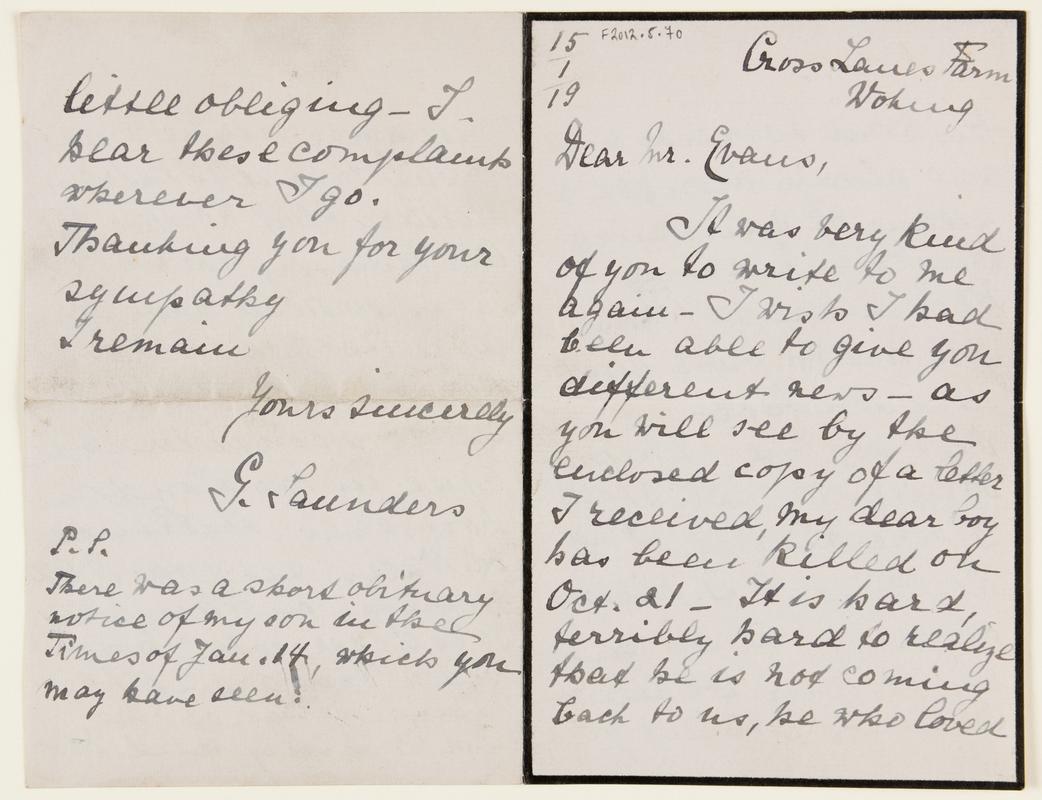 15
1
19
F2012.5.70
Cross Lanes Farm
Woking
Dear Mr. Evans,
It was very kind
of you to write to me
again – I wish I had
been able to give you
different news – as
you will see by the
enclosed copy of a letter
I received, my dear boy
has been killed on
Oct. 21 – It is hard,
terribly hard to realize
that he is not coming
back to us, he who loved
little obliging – I
hear these complaints
wherever I go.
Thanking you for your
sympathy
I remain
Yours sincerely
G. Saunders
P.S.
There was a short obituary
notice of my son in the
Times of Jan. 14, which you
may have seen.